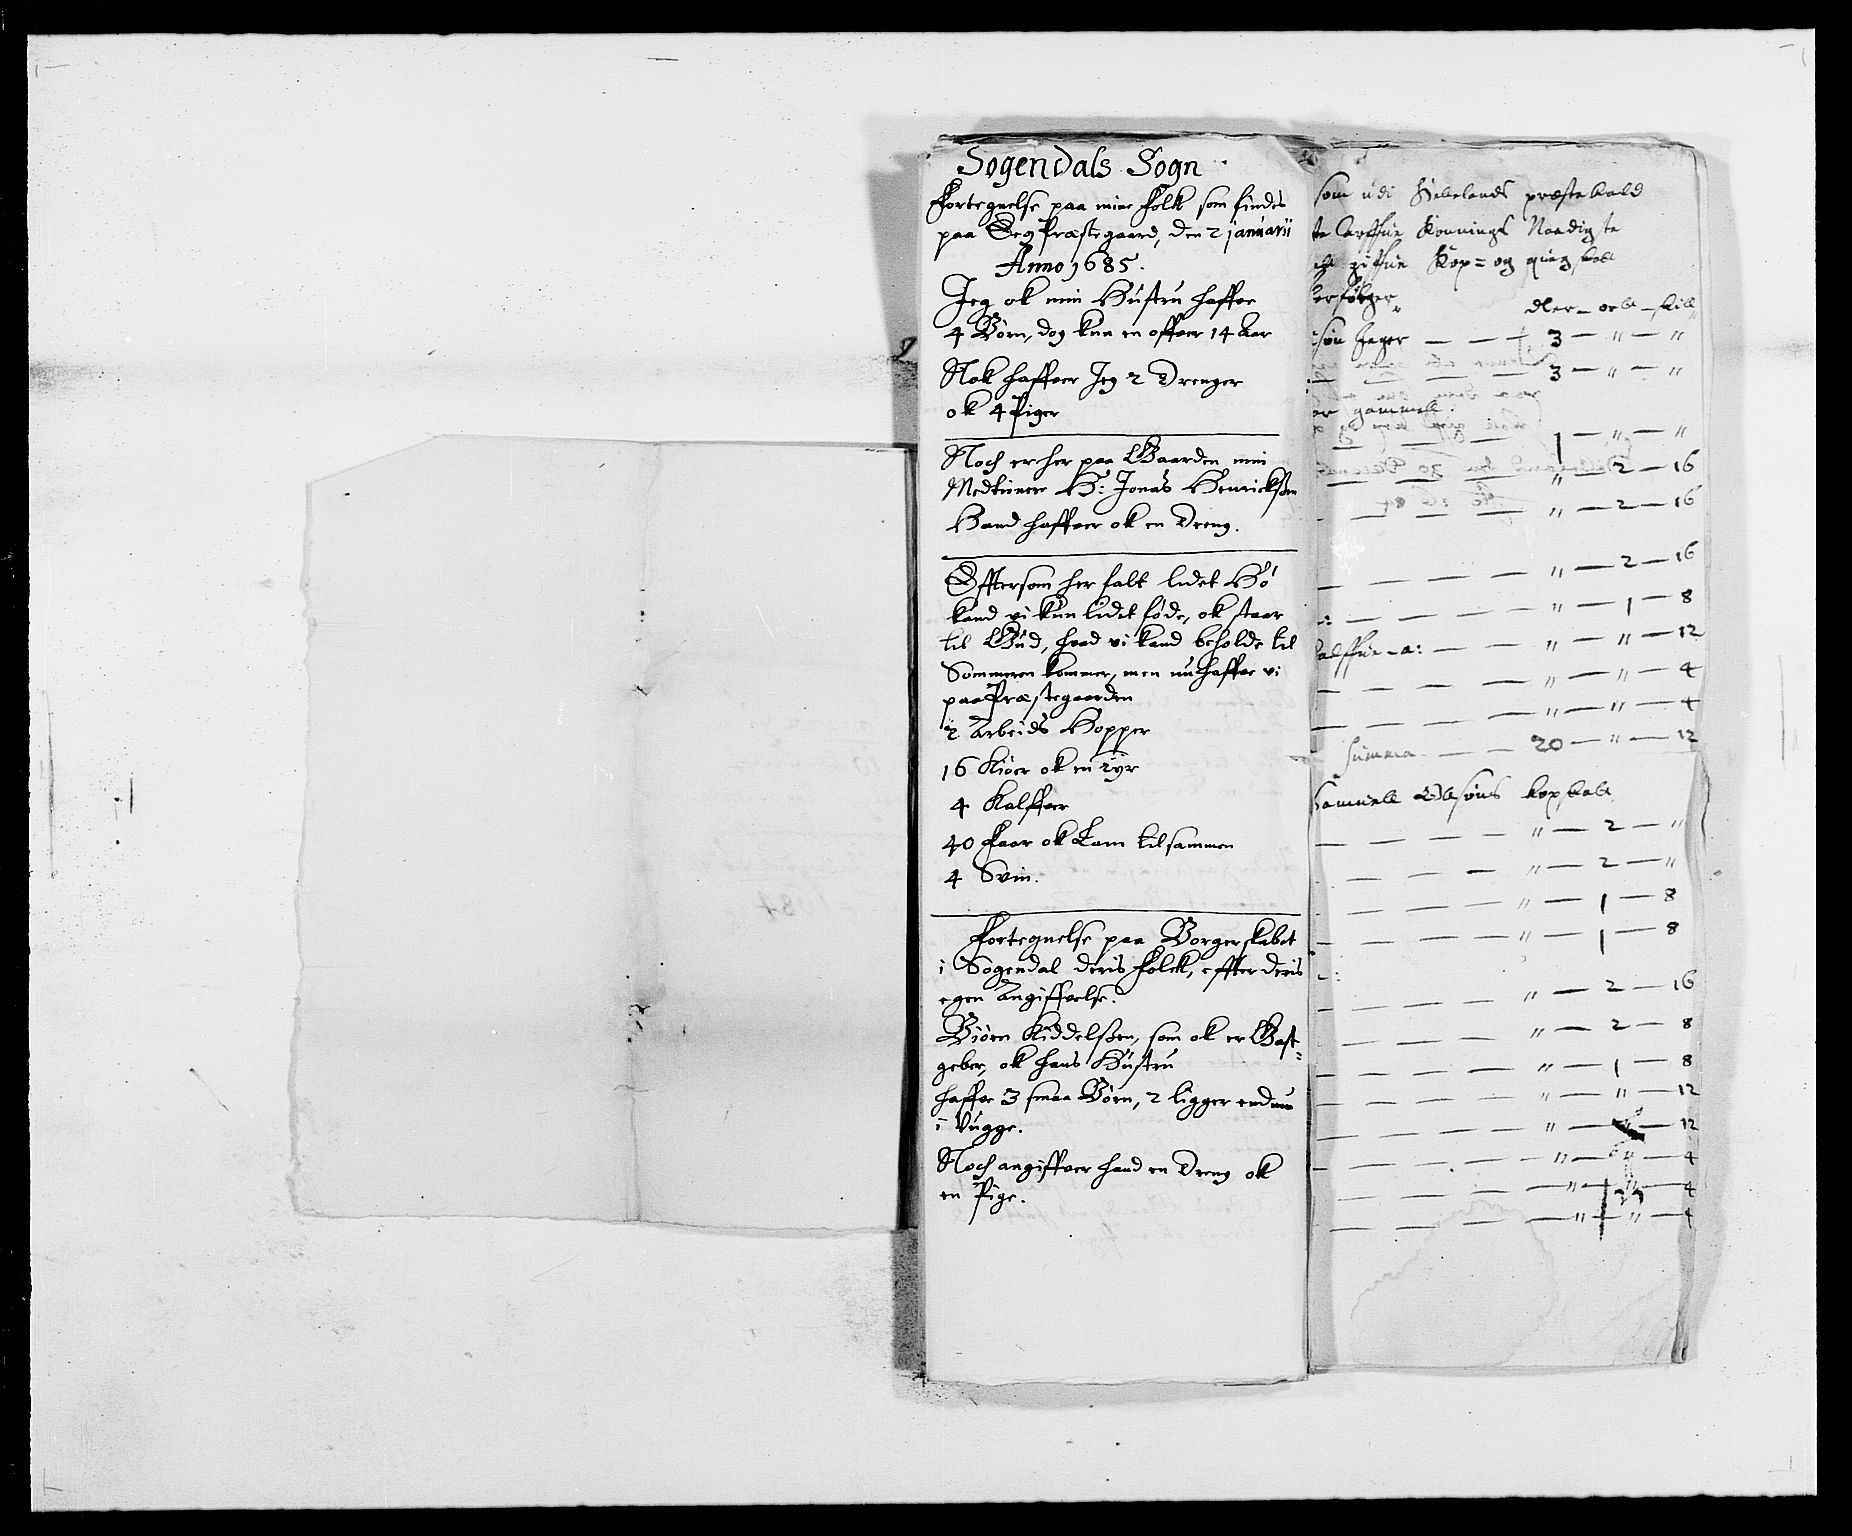 Sogendals Sogn
Fortegnelse paa mine Folk som findes
paa Præstegaard, den 2 januarii
Anno 1685.
Jeg ok min Hustru haffer
4 Børn, dog kun en offuer 14 Aar
Nok haffuer Jeg 2 Drenger
ok 4 Piger
Noch er her paa Gaarden min
Medtiener H: Jonas Henrickßøn
Hand haffuer ok en Dreng.
Efftersom her falt lidet Hø
kand vi kun lidet føde, ok staar
til Gud, hvad vi kand beholde til
Sommeren kommer, men nu haffue vi
paa Præstegaarden
2 Arbeids Hopper
16 Kiøer ok en Tyr
4 Kalffuer
40 Faar ok Lam tilsammen
4 Svin.
Fortegnelse paa Borgerskabet
i Sogendal deris Folck, effter deris
egen Angiffuelse.
Biørn Kiddelßen, som ok er Gast=
geber, ok hans Hustru
haffue 3 smaa Børn, 2 ligger endnu
i Vugge.
Noch angiffuer hand en Dreng ok
en Pige.
som udi Hellelands præstekald
Konnings Naadigste
giffne Kop= og qvegskatt
dler - ort - skill
Jeger — — 3 — " — "
— 3 — " — "
gammell.
1 — " — "
" — 2 — 16
— — — " — 2 — 16
— — — — " — 2 — 16
— — — — " — 1 — 8
— — " — " — 12
— — — — " — " — 4
— — — — " — " — 4
Summa — — 20 — " — 12
Samuell Olsøns kopskatt
— — — — " — 2 — "
— — — — " — 2 — "
— — — — " — 1 — 8
— — — — " — 1 — 8
— — — — " — 2 — 16
— — — — " — 2 — 8
— — — — " — 1 — 8
— — — — " — " — 12
— — — — " — " — 12
— — — — " — " — 4
— — — — " — " — 4
— — — — " — " — 4